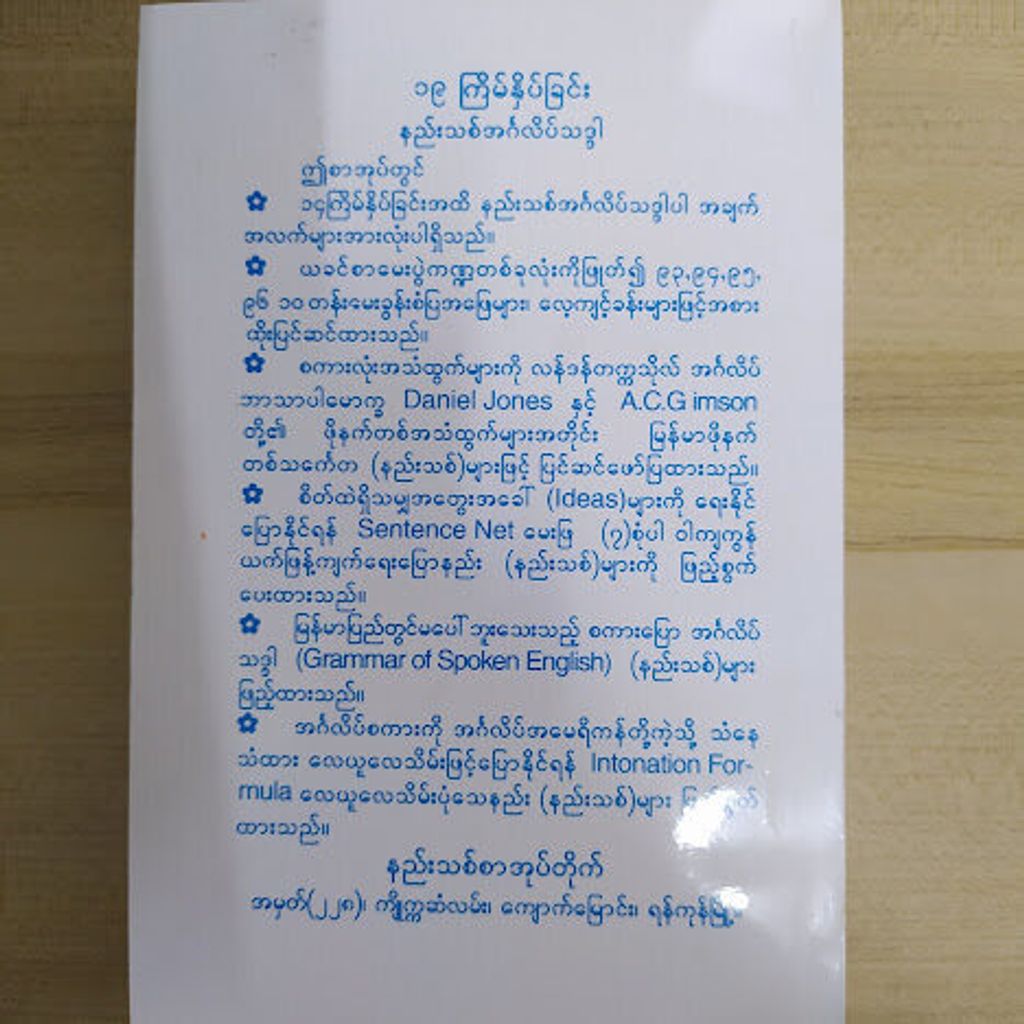 ၁၉ ကြိမ်နှိပ်ခြင်း
နည်းသစ်အင်္ဂလိပ်သဒ္ဒါ
ဤစာအုပ်တွင်
✿ ၁၄ကြိမ်နှိပ်ခြင်းအထိ နည်းသစ်အင်္ဂလိပ်သဒ္ဒါပါ အချက်
အလက်များအားလုံးပါရှိသည်။
✿ ယခင်စာမေးပွဲကဏ္ဍတစ်ခုလုံးကိုဖြုတ်၍ ၉၃,၉၄,၉၅,
၉၆ ၁၀ တန်းမေးခွန်းစံပြအဖြေများ၊ လေ့ကျင့်ခန်းများဖြင့်အစား
ထိုးပြင်ဆင်ထားသည်။
✿ စကားလုံးအသံထွက်များကို လန်ဒန်တက္ကသိုလ် အင်္ဂလိပ်
ဘာသာပါမောက္ခ Daniel Jones နှင့် A.C.G imson
တို့၏ ဖိုနက်တစ်အသံထွက်များအတိုင်း မြန်မာဖိုနက်
တစ်သင်္ကေတ (နည်းသစ်)များဖြင့် ပြင်ဆင်ဖော်ပြထားသည်။
✿ စိတ်ထဲရှိသမျှအတွေးအခေါ် (Ideas)များကို ရေးနိုင်
ပြောနိုင်ရန် Sentence Net မေးဖြ (၇)စုံပါ ဝါကျကွန်
ယက်ဖြန့်ကျက်ရေးပြောနည်း (နည်းသစ်)များကို ဖြည့်စွက်
ပေးထားသည်။
✿ မြန်မာပြည်တွင်မပေါ်ဘူးသေးသည့် စကားပြော အင်္ဂလိပ်
သဒ္ဒါ (Grammar of Spoken English) (နည်းသစ်)များ
ဖြည့်ထားသည်။
✿ အင်္ဂလိပ်စကားကို အင်္ဂလိပ်အမေရိကန်တို့ကဲ့သို့ သံနေ
သံထား လေယူလေသိမ်းဖြင့်ပြောနိုင်ရန် Intonation For-
mula လေယူလေသိမ်းပုံသေနည်း (နည်းသစ်)များ
ထားသည်။
နည်းသစ်စာအုပ်တိုက်
အမှတ်(၂၂၈)၊ ကျိုက္ကဆံလမ်း၊ ကျောက်မြောင်း၊ ရန်ကုန်မြို့။